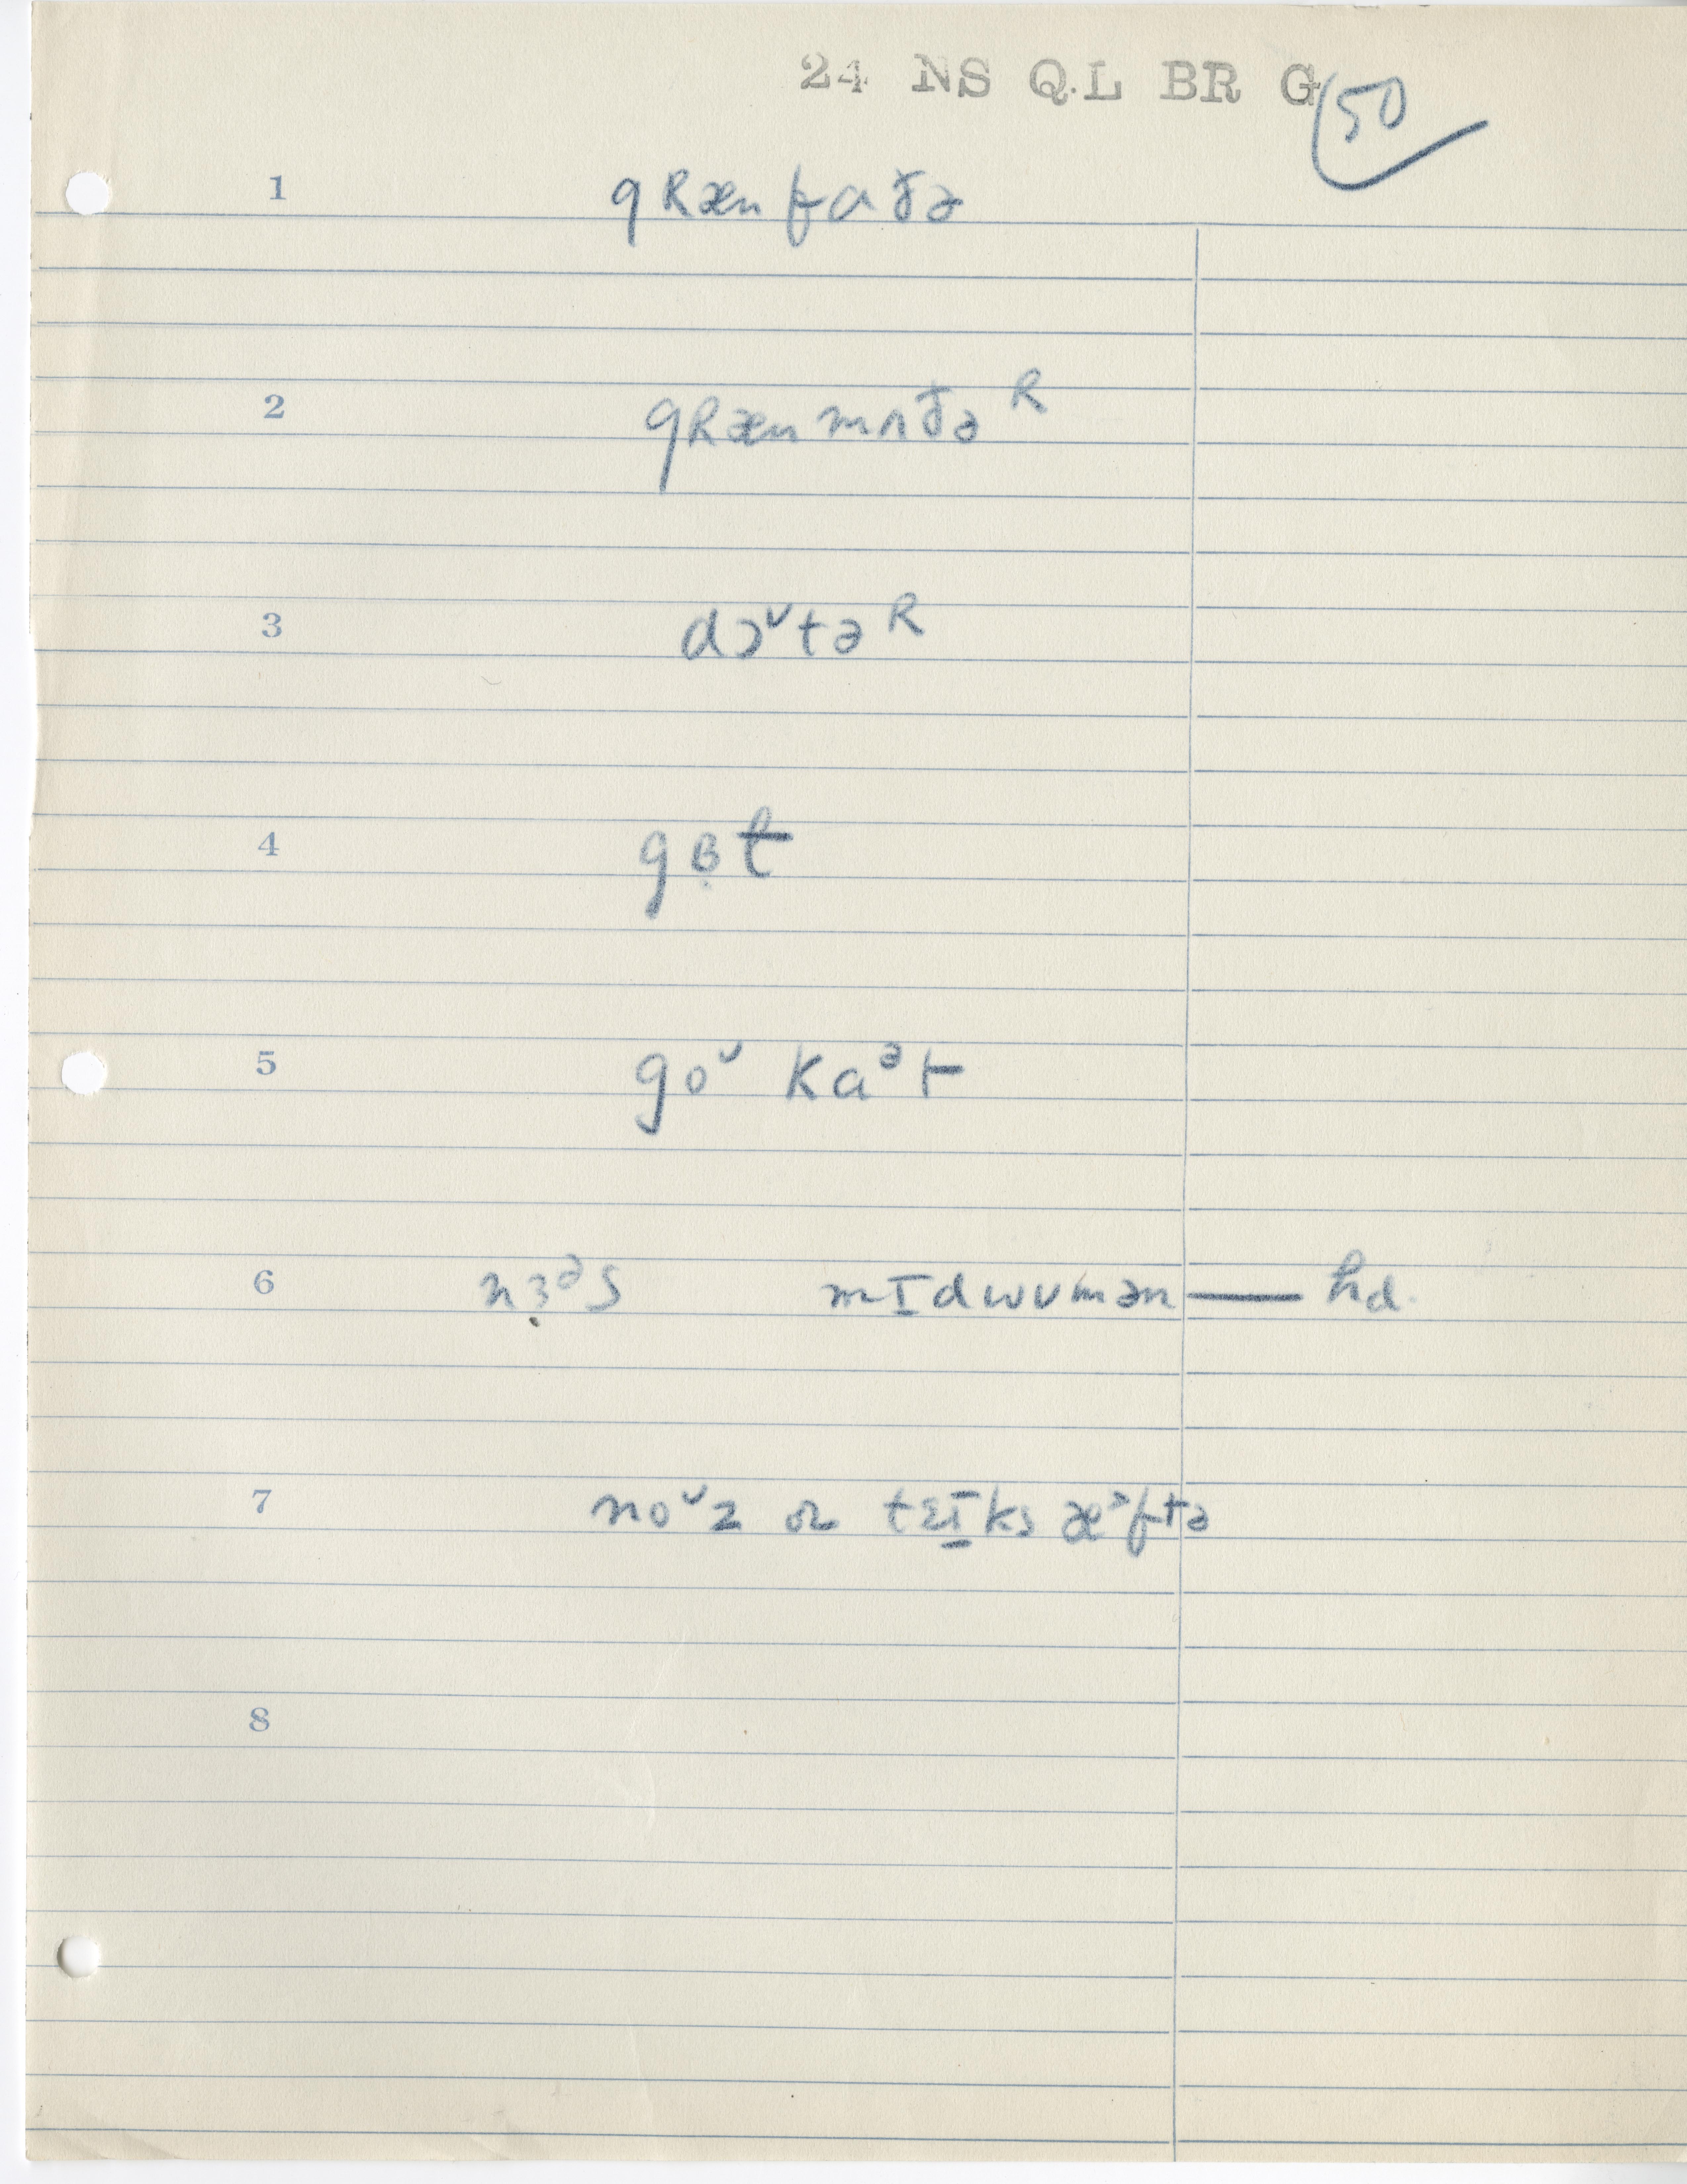 24 NS Q.L BR G 50
1 gRæn faðə
2 gRæn mʌðəᴿ
3 dɔᵛtəᴿ
4 gɞ̣t
5 goᵛ kaᵊt
6 nɜ̣ᵊs mɪdwʊmən — hd.
7 noᵛz or tɛɪ̱ks æᵊftə
8